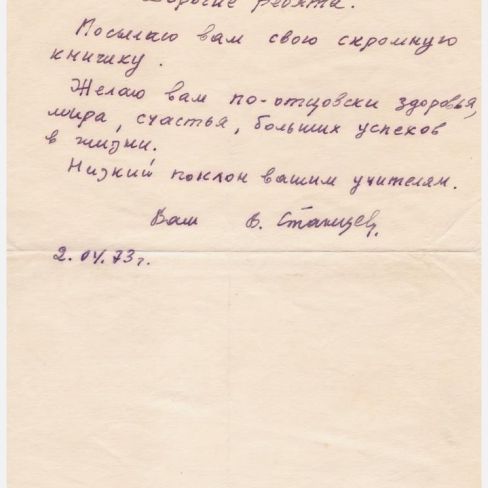 Дорогие ребята.
Посылаю вам свою скромную
книжку.
Желаю вам по-отцовски здоровья,
мира, счастья, больших успехов
в жизни.
Низкий поклон вашим учителям.
Ваш В.
2.04.73г.